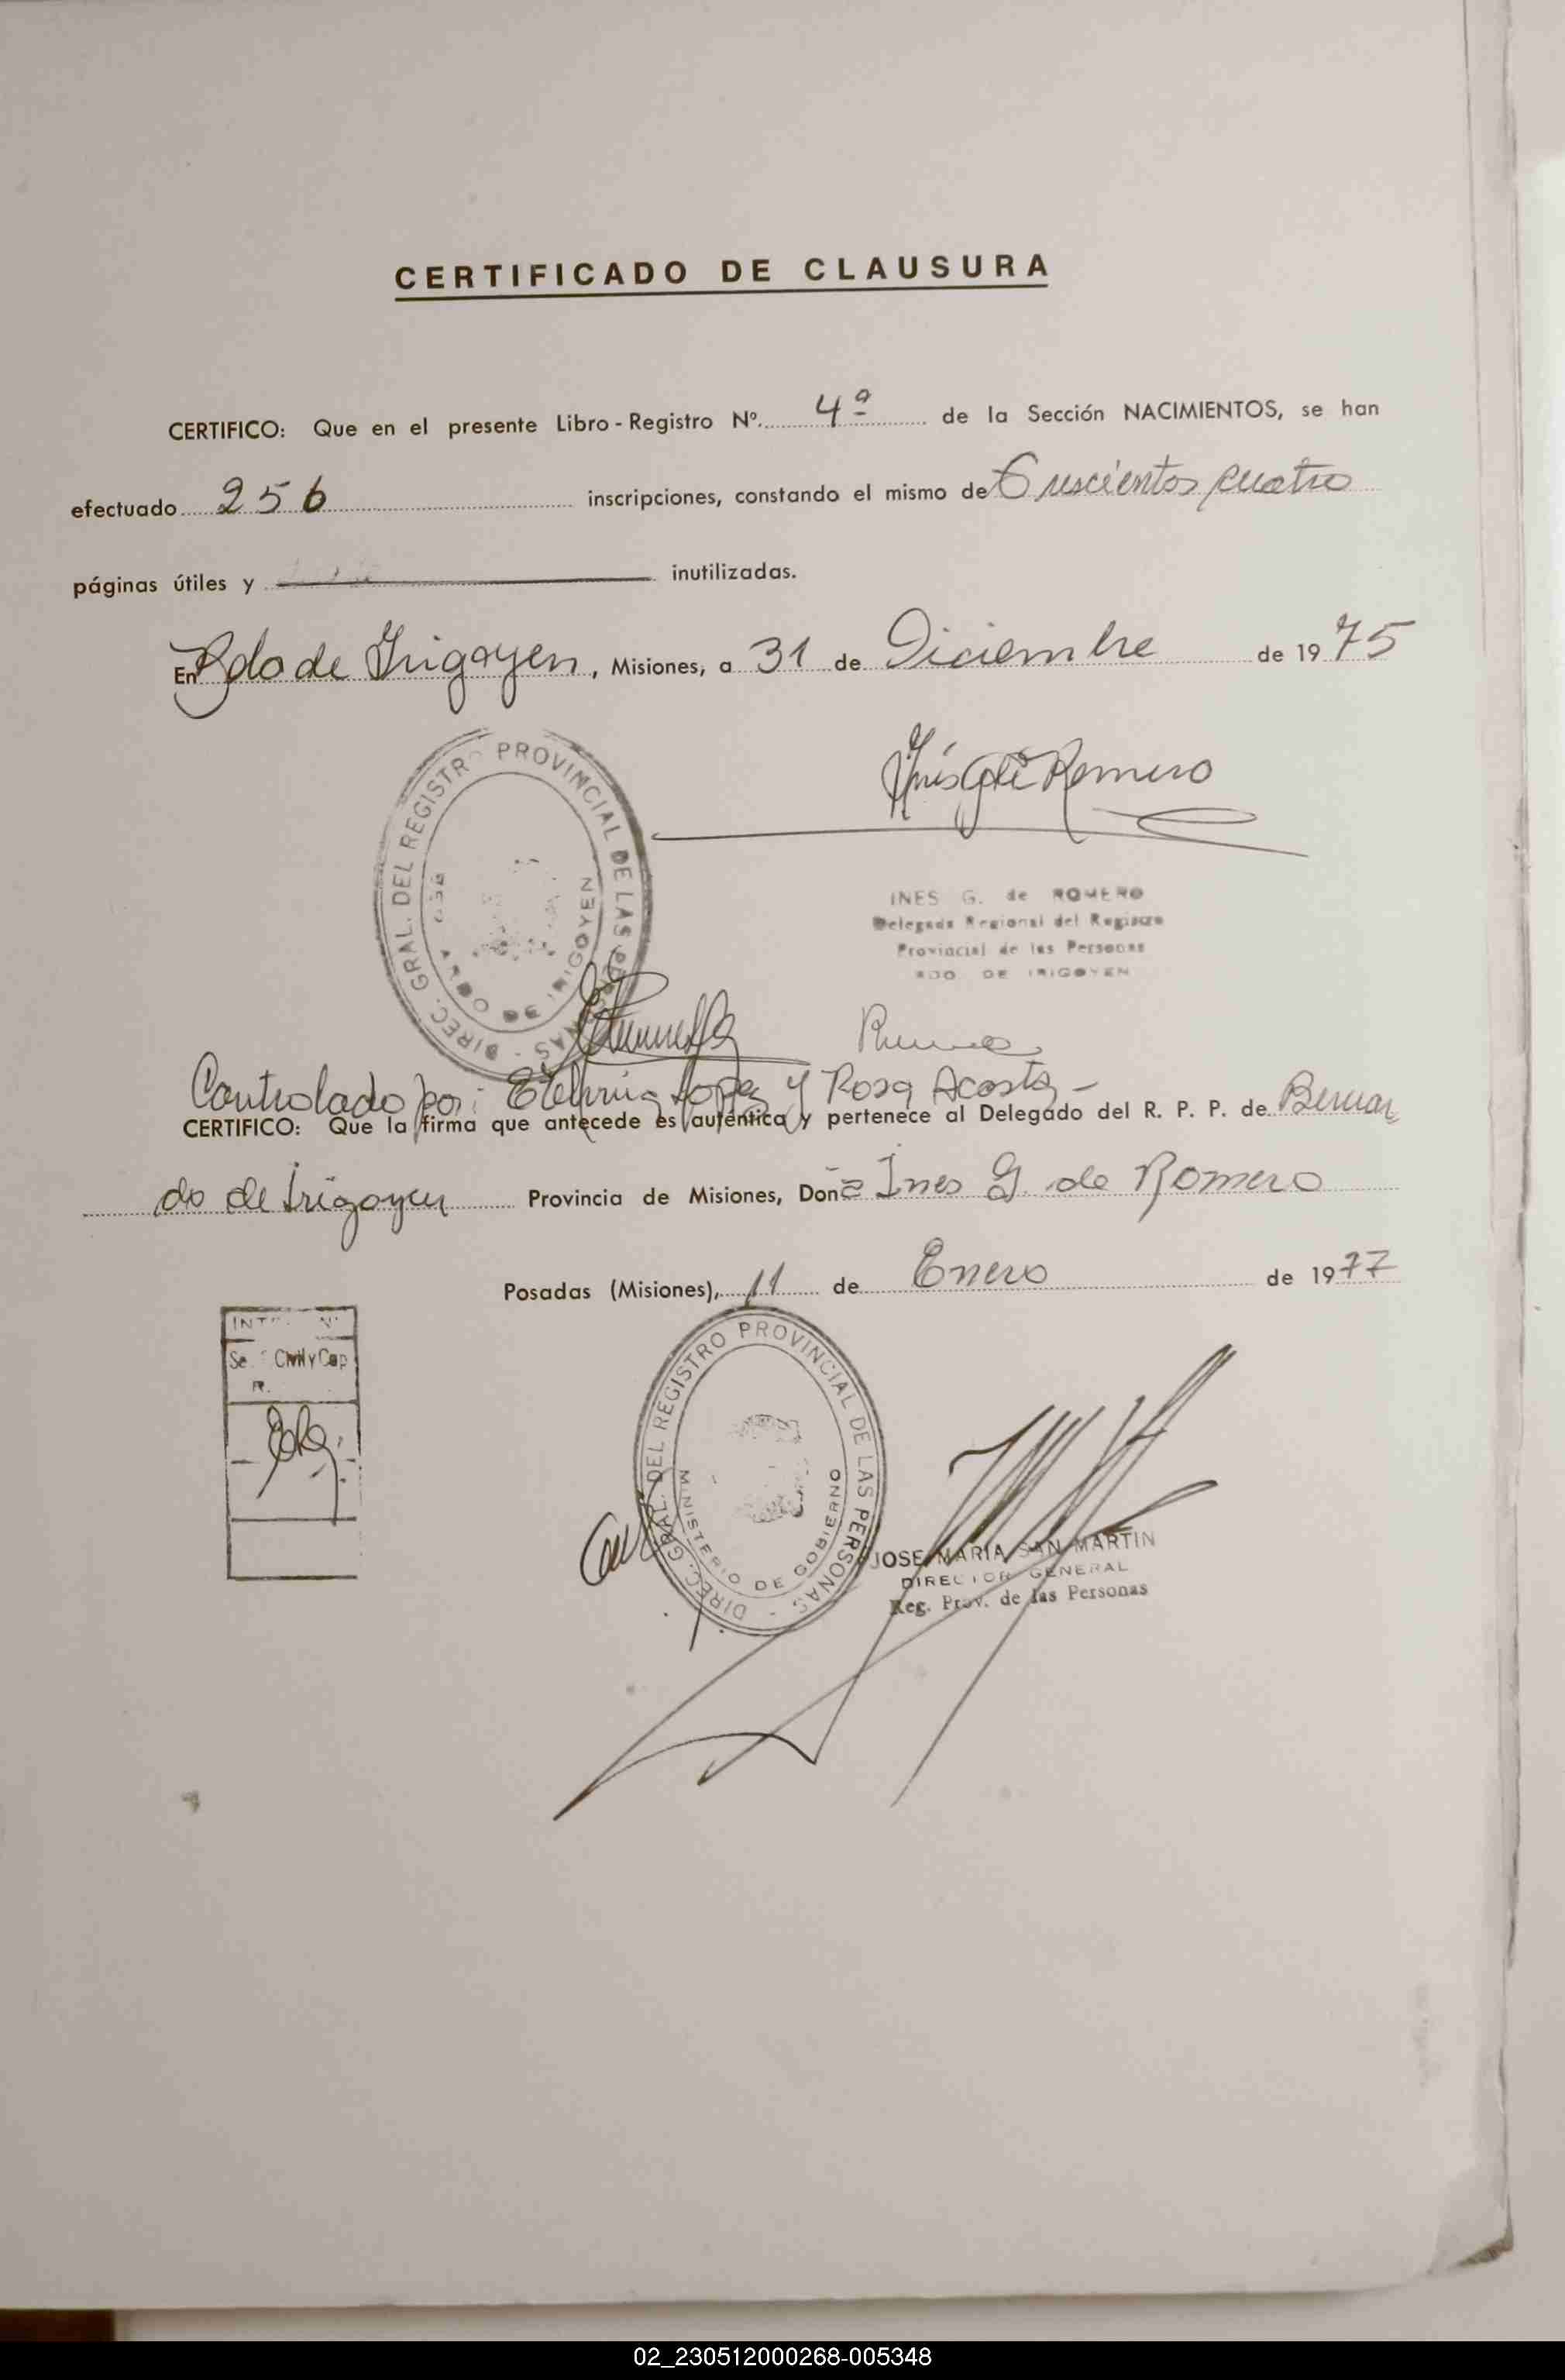 CERTIFICADO DE CLAUSURA
CERTIFICO: Que en el presente Libro-Registro Nº. 4º de la Sección NACIMIENTOS, se han
efectuado 256 inscripciones, constando el mismo de Trescientos cuatro
páginas útiles y inutilizadas.
En Bdo de Irigoyen, Misiones, a 31 de Diciembre de 1975
DIREC. GRAL. DEL REGISTRO PROVINCIAL DE LAS PERSONAS
IRIGOYEN
Inés G de Romero
INES G. de ROMERO
Delegada Regional del Registro
Provincial de las Personas
BDO DE IRIGOYEN
Controlado por: Etelvina Lopez y Rosa Acosta -
CERTIFICO: Que la firma que antecede es auténtica y pertenece al Delegado del R. P. P. de Bernar
do de Irigoyen Provincia de Misiones, Doña Ines G. de Romero
Posadas (Misiones), 11 de Enero de 1977
Civil y Cap
DIREC. GRAL. DEL REGISTRO PROVINCIAL DE LAS PERSONAS -
MINISTERIO DE GOBIERNO
JOSE MARIA SAN MARTIN
DIRECTOR GENERAL
Reg. Prov. de las Personas
02_230512000268-005348